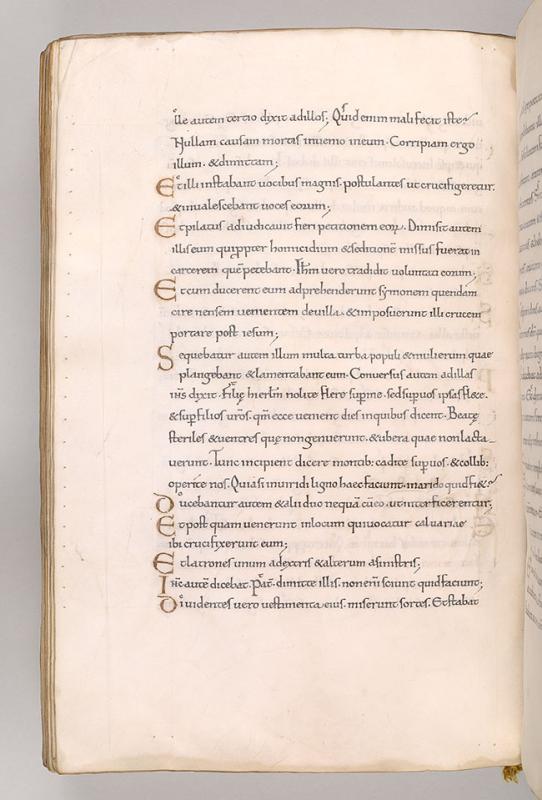 Ille autem tertio dixit adillos; Quid enim mali fecit iste?
Nullam causam mortis inuenio ineum. Corripiam ergo
illum. &dimittam;
Et illi instabant uocibus magnis. postulantes ut crucifigeretur.
&inualescebant uoces eorum;
Et pilatus adiudicauit fieri petitionem eoꝝ. Dimisit autem
illis eum qui propter homicidium & seditionē missus fuerat in
carcerem quē petebant. Ihm uero tradidit uoluntati eorum;
Et cum ducerent eum adprehenderunt symonem quendam
cirenensem uenientem deuilla. &imposuerunt illi crucem
portare post iesum;
Sequebatur autem illum multa turba populi &mulierum quae
plangebant &lamentabant eum. Conuersus autem adillas
ihs dixit. Filię hierlm nolite flere supme. sed supuos ipsas flete.
&sup filios uros. qm ecce uenient dies inquibus dicent. Beatę
steriles &uentres quę nongenuerunt. &ubera quae nonlacta
uerunt. Tunc incipient dicere montib: cadite sup nos. &collib:
operite nos. Quia si inuiridi ligno haec faciunt inarido quid fi&?
Ducebantur autem &alii duo nequā cū eo. ut interficerentur;
Et post quam uenerunt inlocum qui uocatur caluariae
ibi crucifixerunt eum;
Et latrones unum adextris &alterum asinistris;
Ihs autē dicebat. Pat. dimitte illis. non eni sciunt quid faciunt;
Diuidentes uero uestimenta eius. miserunt sortes. Et stabat